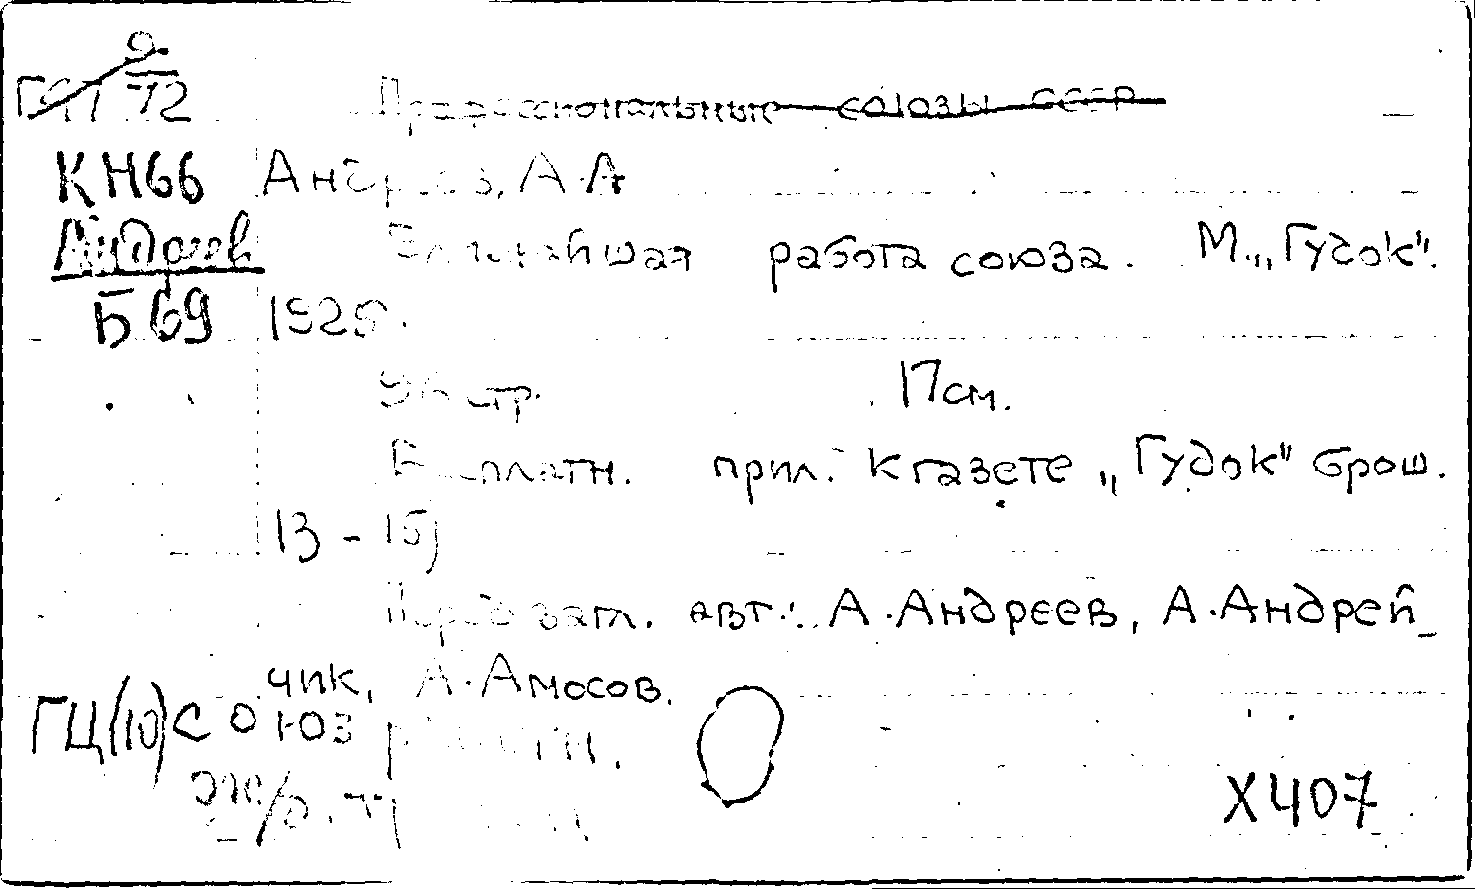 9
72 Профессиональные союзы СССР
КН66 Андреев, А.А
Андреев Ближайшая работа союза. М. „Гудок".
Б69 1925.
стр. 17см.
Бесплатн. прил. к газете „Гудок" брош.
13-15)
Перед загл. авт.: А. Андреев, А. Андрей-
чик, А. Амосов.
ГЦ(10) союз
Х407